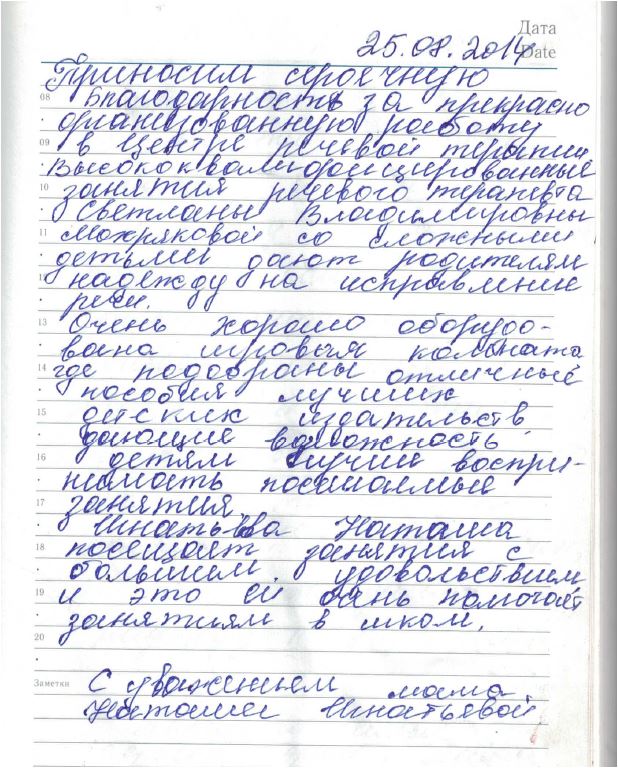 Дата
25.08.2014
Date
Приносим сердечную
08 Благодарность за прекрасно
организованную работу
09 в Центре речевой терапии
Высококвалифицированные
10 занятия речевого терапевта
Светланы Владимировны
11 Мохряковой со сложными
детьми дают родителям
12 надежду на исправление
речи.
13 Очень хорошо оборудо-
вана игровая комната
14 где подобраны отличные
пособия лучших
15 детских издательств,
дающие возможность
16 детям лучше воспри-
нимать посещаемые
17 занятия.
Игнатьева Наташа
18 посещает занятия с
большим удовольствием,
19 и это ей очень помогает
занятиям в школ.
20
Заметки С уважением мама
Наташи Игнатьевой